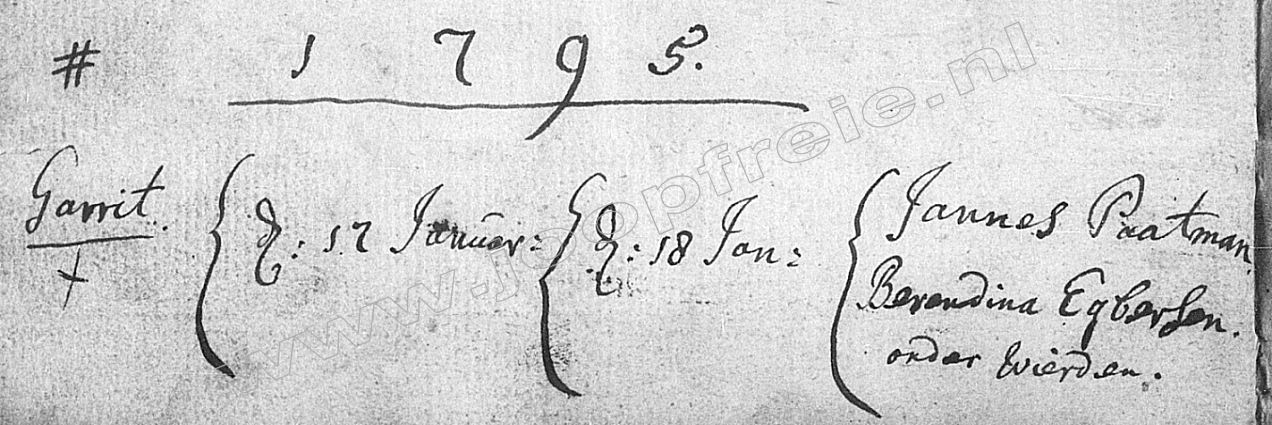 # 1795.
Garrit.
d: 17 Januar:
d: 18 Jan:
Jannes Paatman.
Berendina Egbersen.
onder Wierden.
www.joopfreie.nl